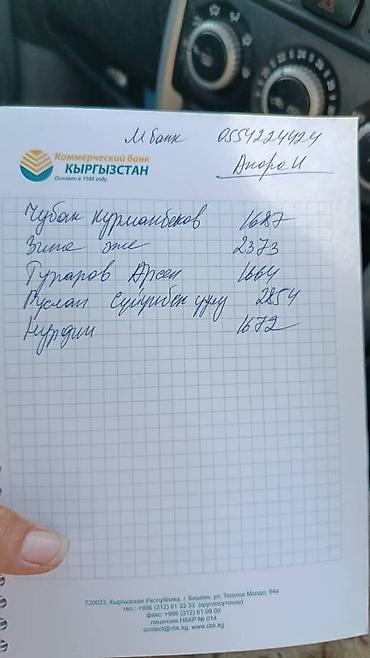 Мбанк 0554224424
Коммерческий банк
КЫРГЫЗСТАН
Основан в 1998 году
Чубак Курманбеков 1687
Зина эже 2373
Тураров Арсен 1664
Руслан уулу 2854
Нурдин 1672
720033, Кыргызская Республика, г. Бишкек, ул. Тоголок Молдо, 54а
тел.: +996 (312) 61 33 33 (круглосуточно)
факс: +996 (312) 61 09 00
лицензия НБКР № 014
contact@cbk.kg, www.cbk.kg